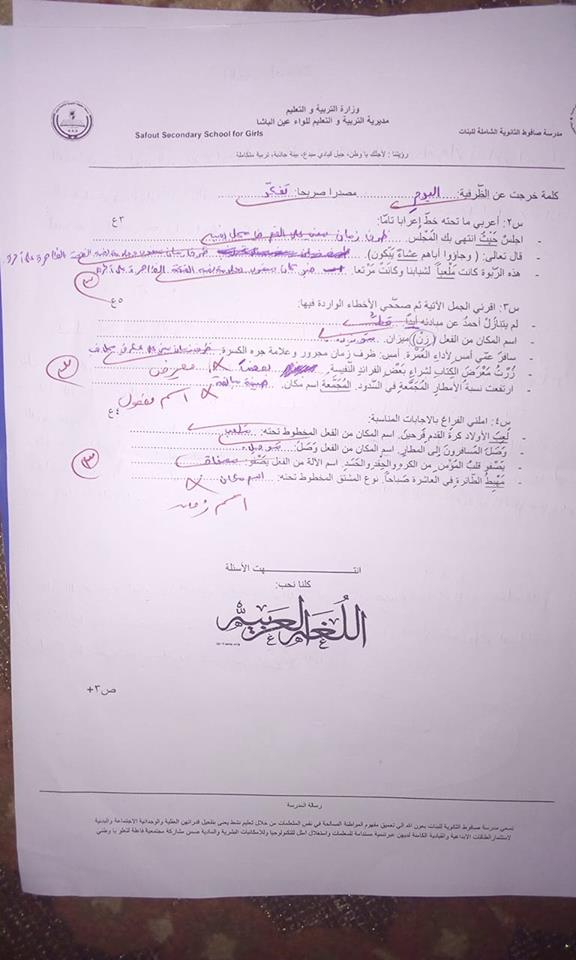 وزارة التربية و التعليم
مديرية التربية و التعليم للواء عين الباشا
مدرسة صافوط الثانوية الشاملة للبنات
Safout Secondary School for Girls
رؤيتنا : لأجلك يا وطن، جيل قيادي مبدع، بيئة جاذبة، تربية متكاملة
كلمة خرجت عن الظّرفية: اليوم مصدرا صريحا: تفكّر
س٢: أعربي ما تحته خطّ إعرابا تامّا: ٣ع
- اجلسْ حَيْثُ انتهى بك المَجْلس. ظرف زمان مبني على الضم في محل نصب
- قال تعالى: ( وجاؤوا أباهم عشاءً يَبكون).
- هذه الرّبوة كانت مَلْعباً لشبابنا وكانتْ مَرْتعا. الفتحة الظاهرة على آخره
٣
س٣: اقرئي الجمل الآتية ثم صحّحي الأخطاء الواردة فيها: ٥ع
- لم يتنازلْ أحمدُ عن مبادئه أبدًا. قطّ
- اسم المكان من الفعل (زِنْ) ميزان.
- سافرَ عمّي أمسِ لأداءِ العُمْرة. أمسِ: ظرف زمان مجرور وعلامة جره الكسرة.
- زُرْتُ مَعْرَضَ الكتاب لشراءِ بَعْضِ الفرائد النّفيسة. بعضَ X معرِض
- ارتفعت نسبة الأمطار المُجَمَّعة في السّدود. المُجَمَّعة اسم مكان. X اسم مفعول
٣
س٤: املئي الفراغ بالاجابات المناسبة: ٤ع
- لَعِبَ الأولاد كرة القدم فرحين. اسم المكان من الفعل المخطوط تحته: ملعب
- وَصَلَ المسافرون إلى المطار. اسم المكان من الفعل وَصَلَ:
- يَصْفو قلبُ المؤمن من الكره والحِقْدِ والحَسَد. اسم الآلة من الفعل يَصْفو: مصفاة
- مَهْبِطُ الطائرة في العاشرة صَباحاً. نوع المشتق المخطوط تحته: اسم مكان X
اسم زمان
٣
انتهت الأسئلة
كلنا نحب:
اللغة العربية
ص٣+
رسالة المدرسة
تسعى مدرسة صافوط الثانوية للبنات بعون الله الى تعميق مفهوم المواطنة الصالحة في نفس المتعلمات من خلال تعليم نشط يعنى بتفعيل قدراتهن العقلية والوجدانية الاجتماعية والبدنية
لاستثمار الطاقات الابداعية والقيادية الكامنة لديهن عبر تنمية مستدامة للمعلمات واستغلال امثل للتكنولوجيا وللامكانيات البشرية والمادية ضمن مشاركة مجتمعية فاعلة لنعلو يا وطني